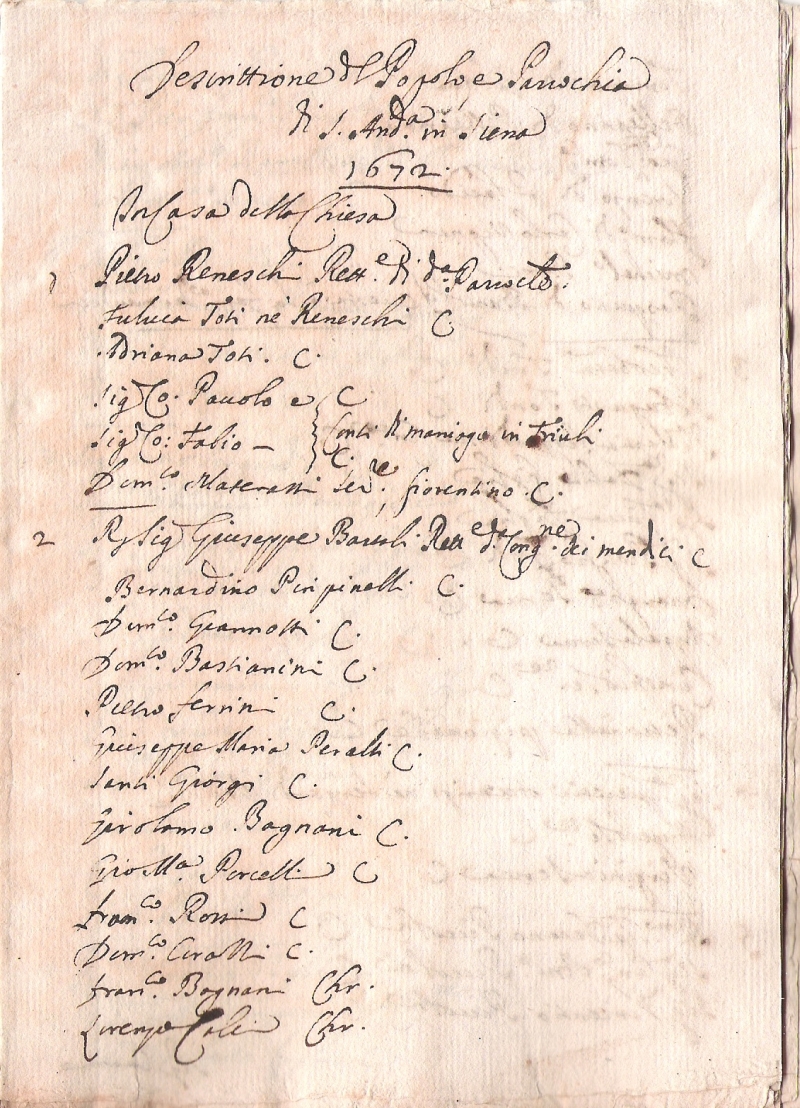 Descrittione del Popolo, e Parrochia
di S. And.a in Siena
1672.
In Casa della Chiesa
1 Pietro Reneschi Rett.e di d.a
Fulvia Toti ne' Reneschi C
Adriana Toti. C.
Sig.r Co. Pauolo e C
Sig.r Co: Fabio – C. Conti di maniago in Friuli
Dom.co ser.re fiorentino. C.
2 R. Sig.r Giuseppe Rett.e d.a Cong.ne dei mendici C
Bernardino Piripinelli C.
Dom.co Giannotti C.
Dom.co Bastianini C.
Pietro ferrini C.
Giuseppe Maria Peratti C.
Santi Giorgi C.
Girolamo Bagnani C.
Gio Ma. Porcelli C
Fran.co Rossi C
Dom.co C.
Fran.co Bagnani Chr.
Lorenzo Chr.